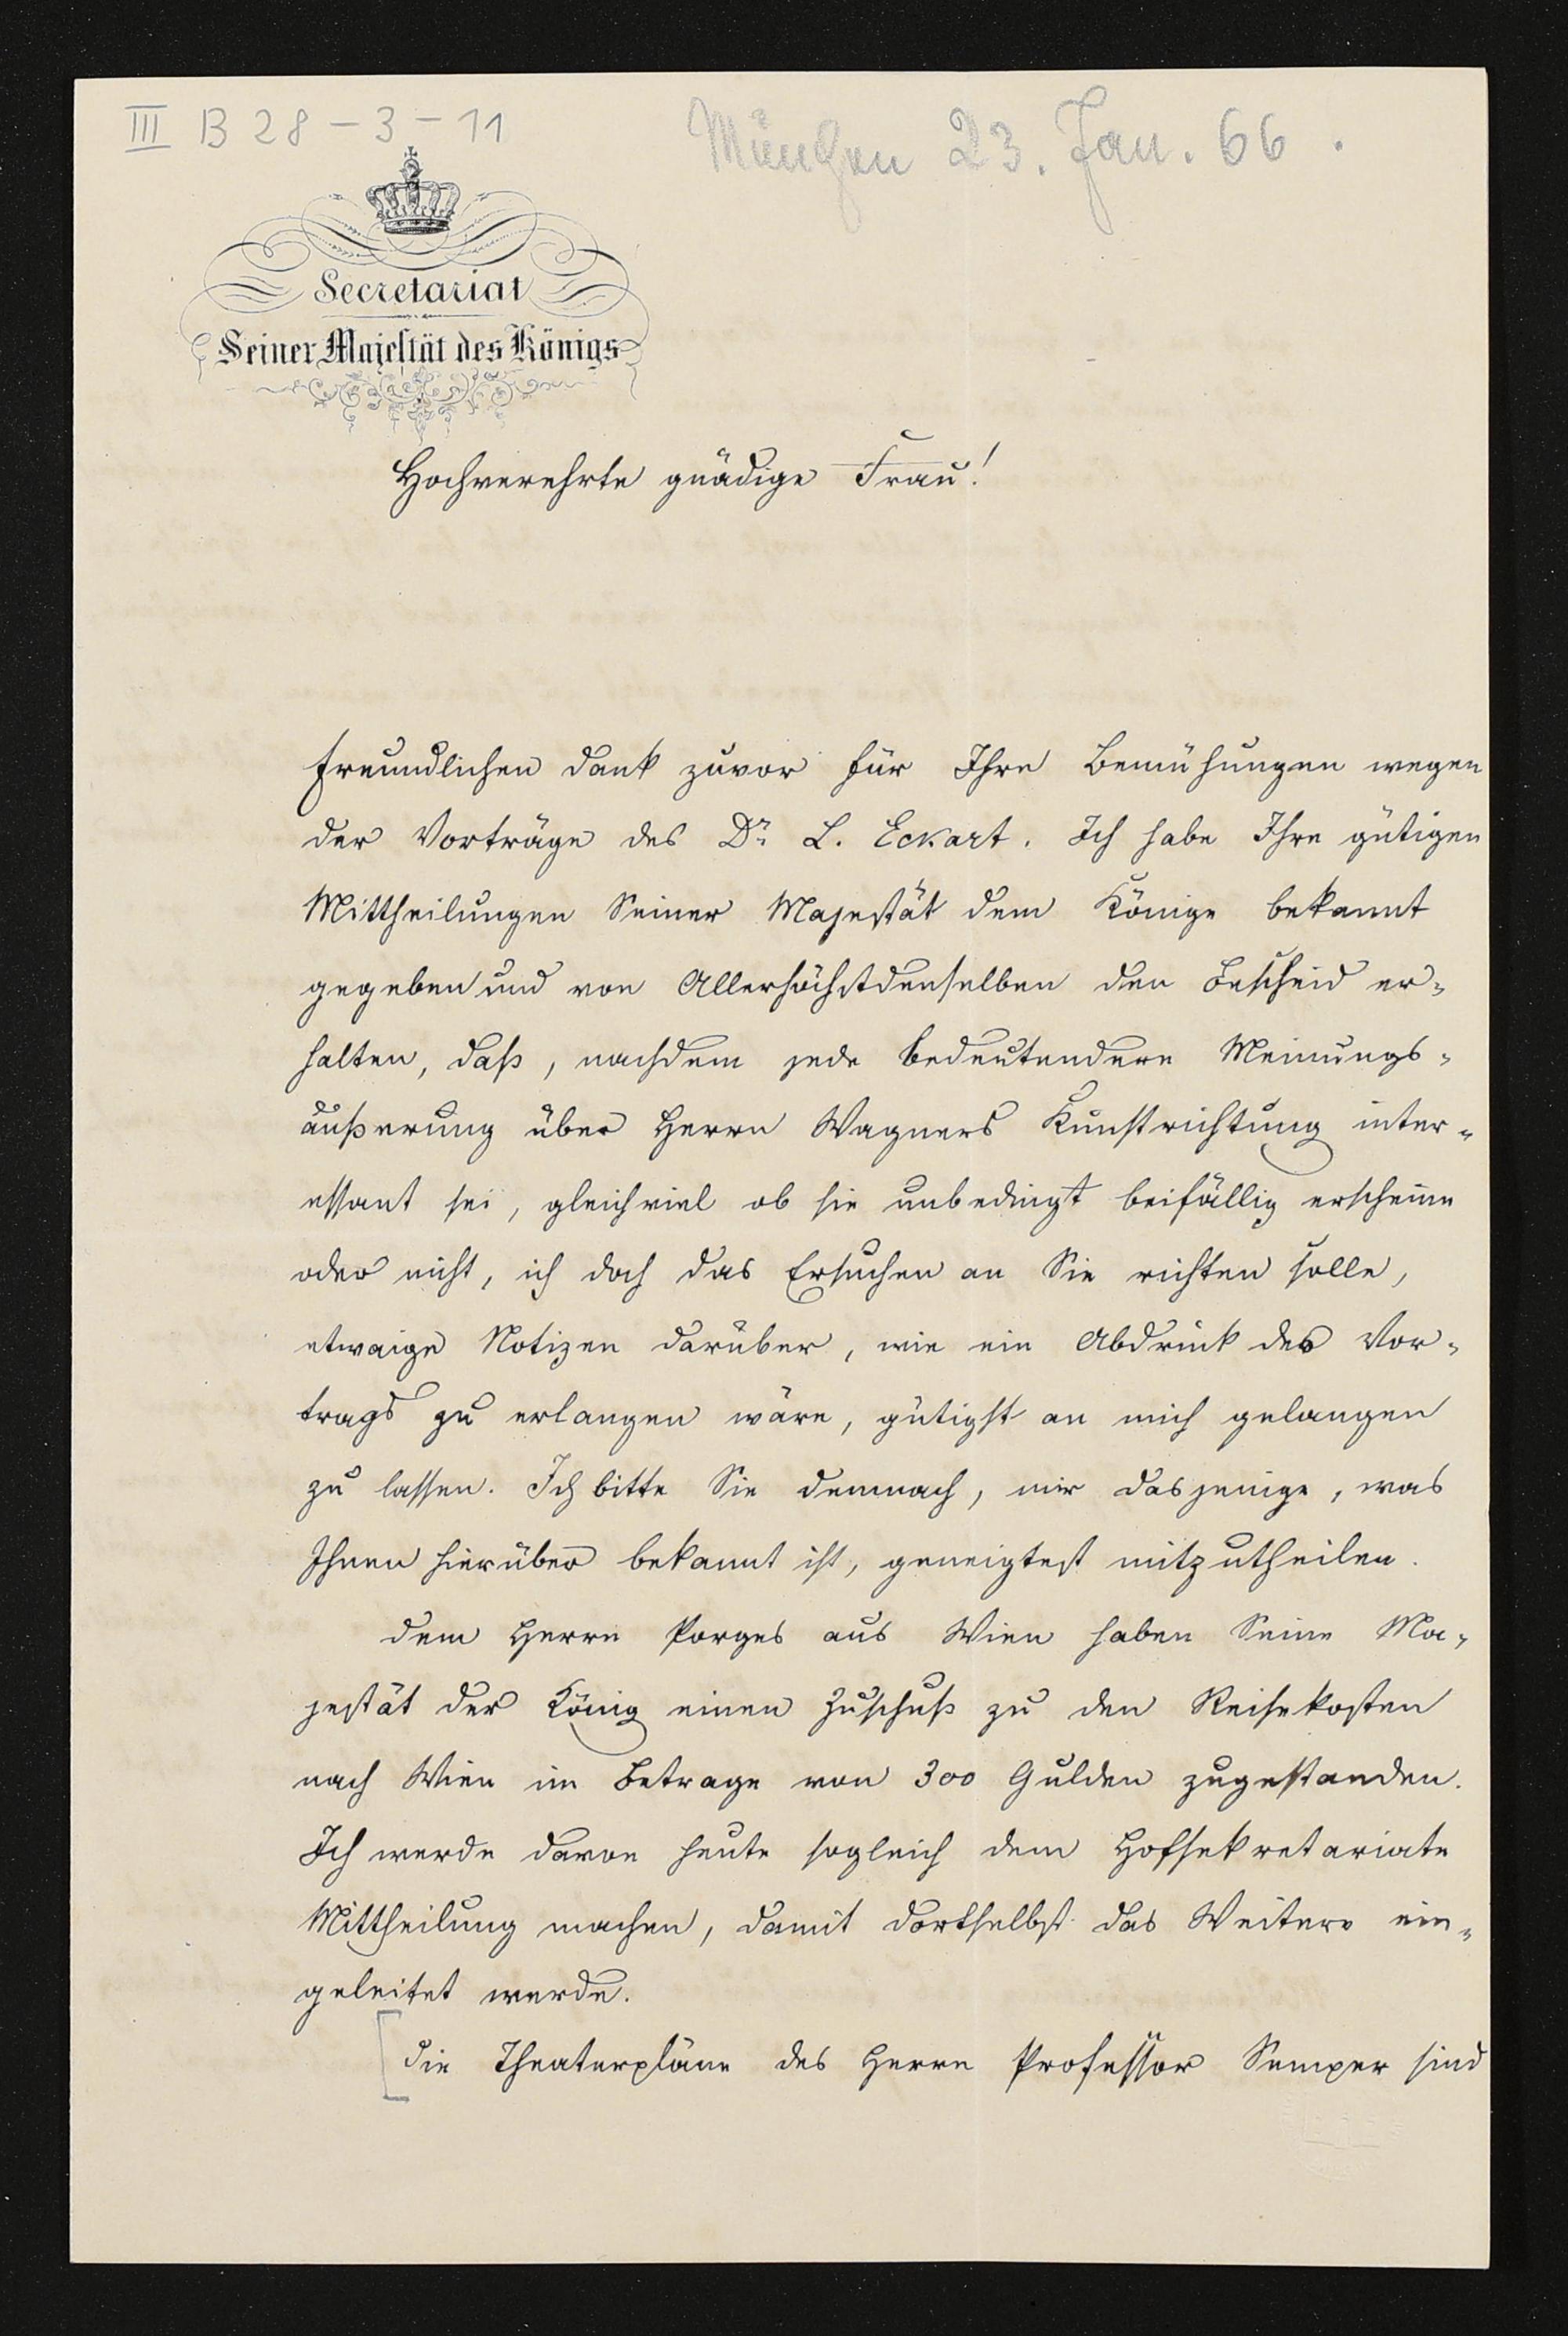 III B 28 - 3 - 11
München 23. Jan. 66.
Secretariat
Seiner Majestät des Königs
Hochverehrte gnädige Frau!
Freundlichen Dank zuvor für Ihre Bemühungen wegen
der Vorträge des Dr. L. Eckart. Ich habe Ihre gütigen
Mittheilungen Seiner Majestät dem Könige bekannt
gegeben und von Allerhöchstdenselben den Bescheid er-
halten, daß, nachdem jede bedeutendere Meinungs-
äußerung über Herrn Wagners Kunstrichtung inter-
essant sei, gleichviel ob sie unbedingt beifällig erscheine
oder nicht, ich doch das Ersuchen an Sie richten solle,
etwaige Notizen darüber, wie ein Abdruck des Vor-
trags zu erlangen wäre, gütigst an mich gelangen
zu lassen. Ich bitte Sie demnach, mir dasjenige, was
Ihnen hierüber bekannt ist, geneigtest mitzutheilen.
Dem Herrn Porges aus Wien haben Seine Ma-
jestät der König einen Zuschuß zu den Reisekosten
nach Wien im Betrage von 300 Gulden zugestanden.
Ich werde davon heute sogleich dem Hofsekretariate
Mittheilung machen, damit dortselbst das Weitere ein-
geleitet werde.
[Die Theaterpläne des Herrn Professor Semper sind